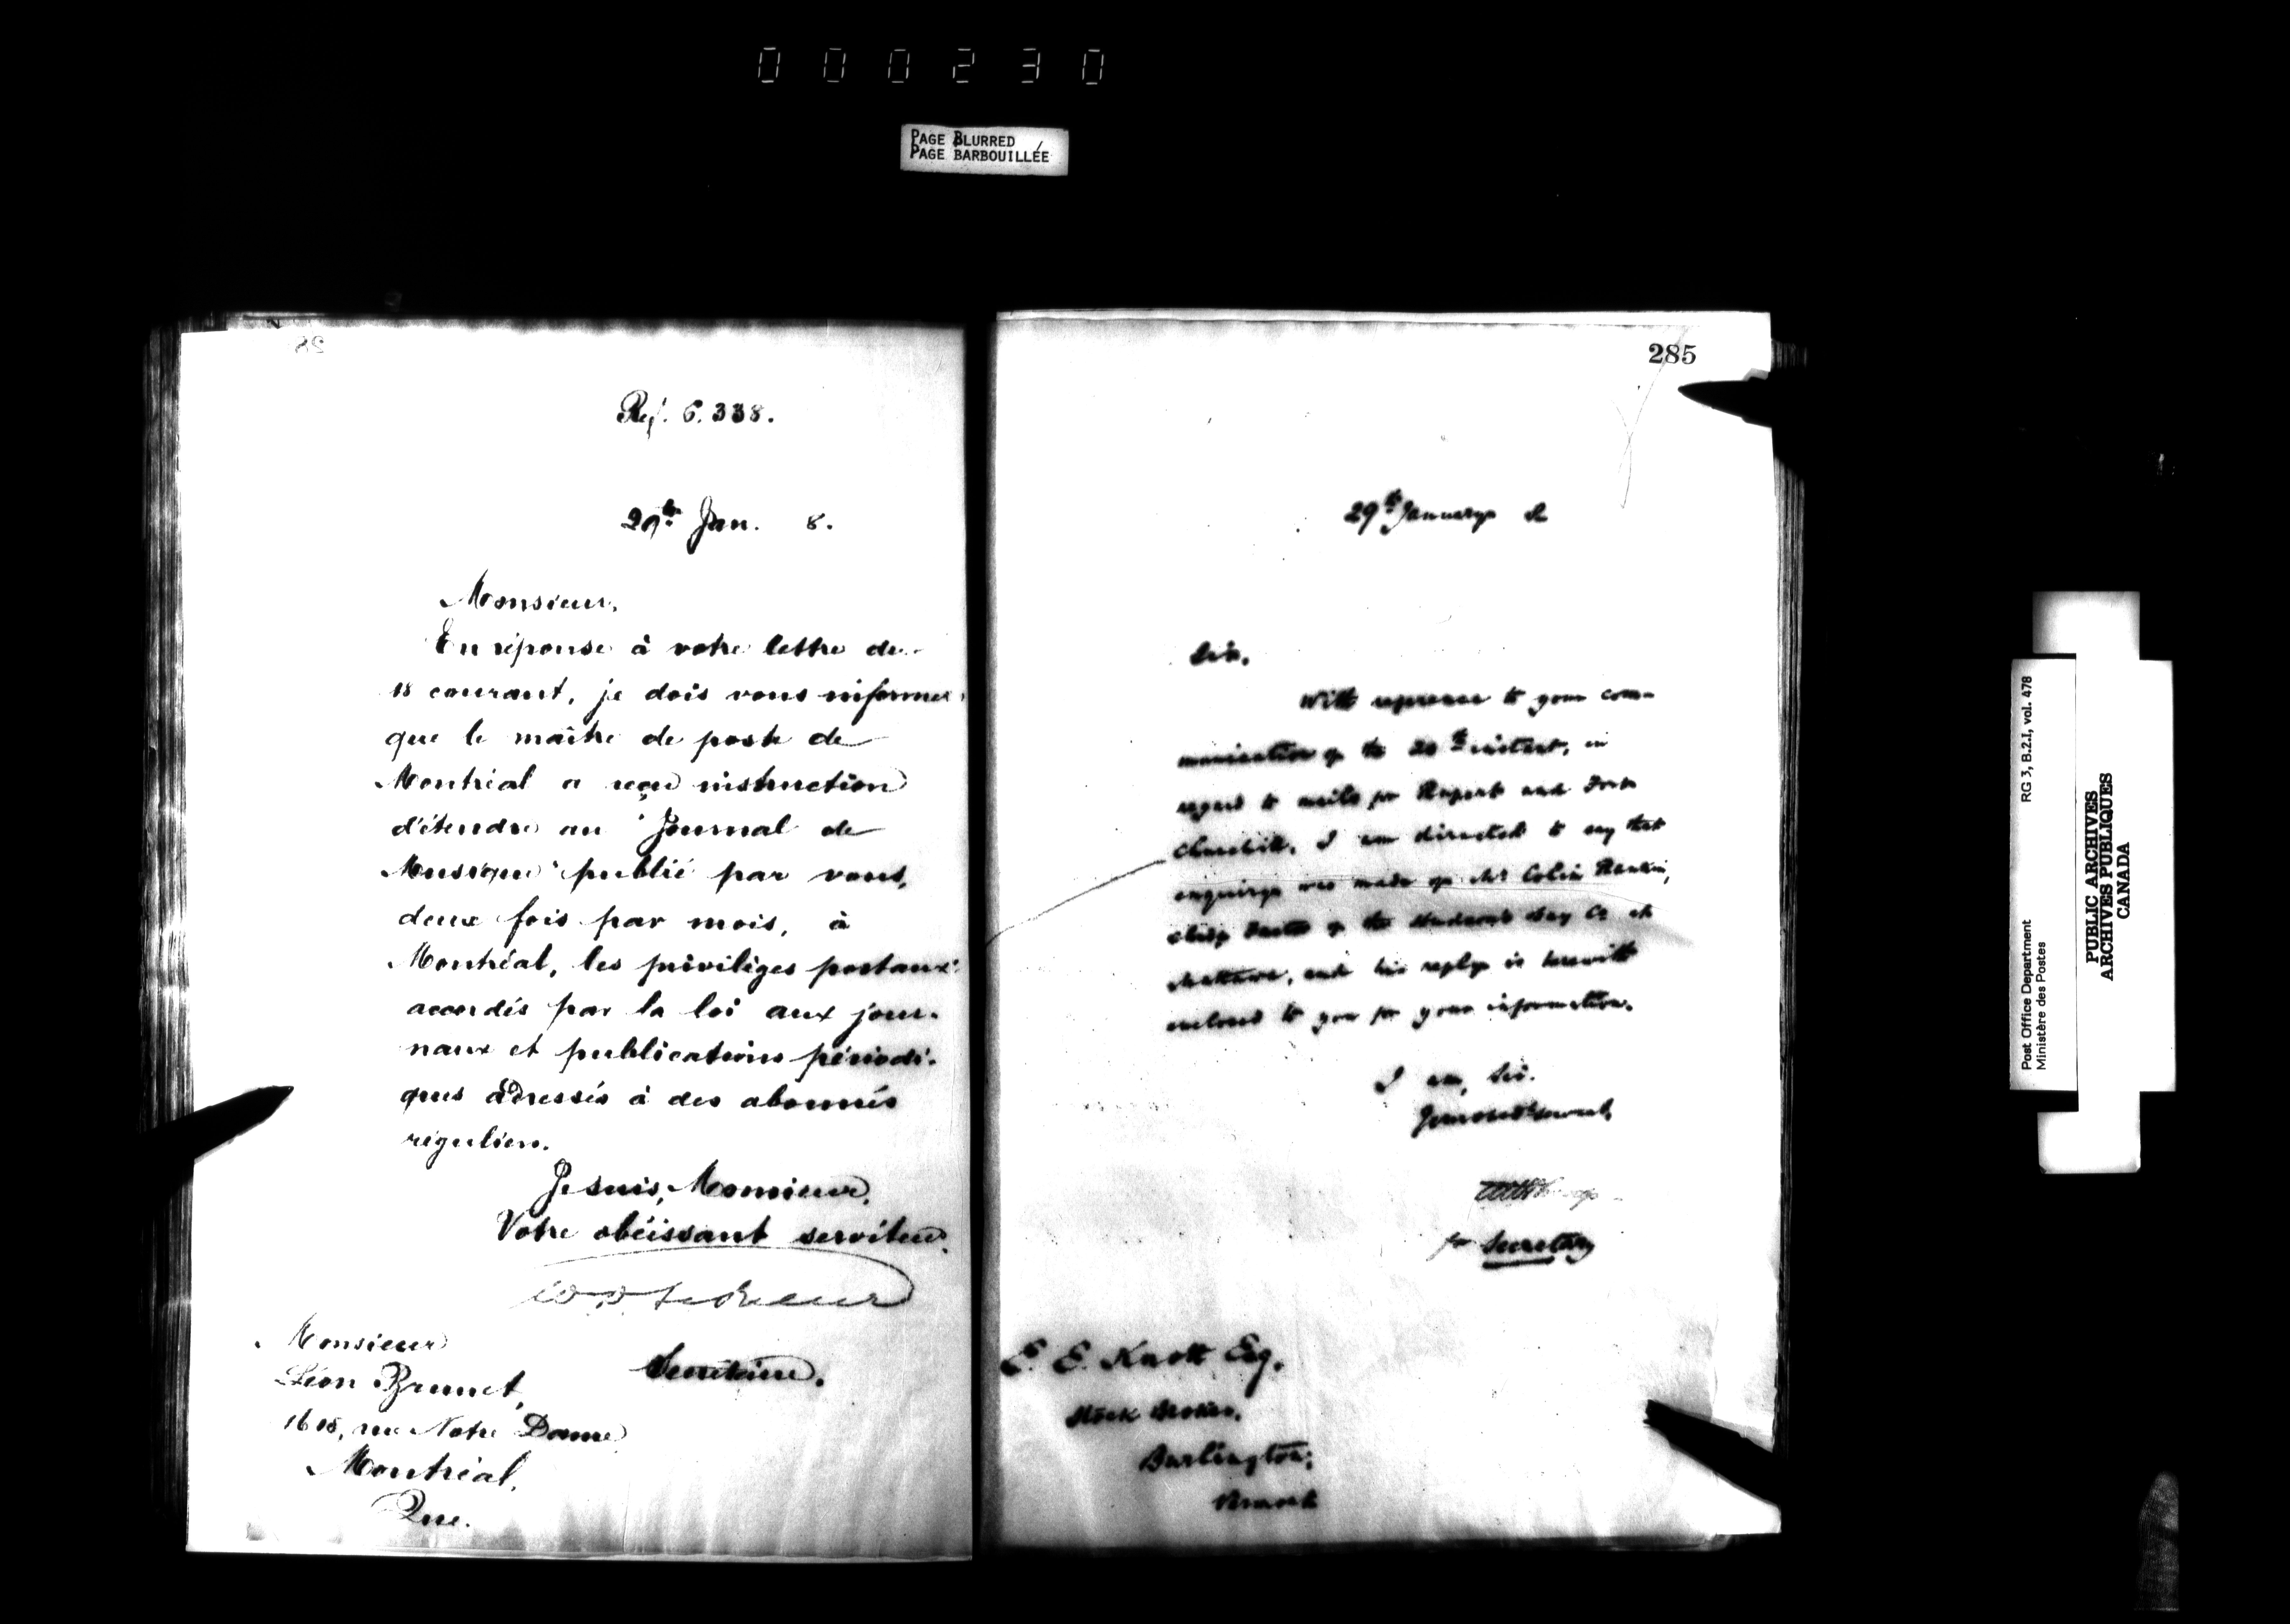 000230
PAGE BLURRED
PAGE BARBOUILLÉE
Ref. 6.338.
29th Jan. 8.
Monsieur,
En réponse à votre lettre du
18 courant, je dois vous informer
que le maître de poste de
Montréal a reçu instruction
d'étendre au "Journal de
Musique" publié par vous,
deux fois par mois, à
Montréal, les privilèges postaux
accordés par la loi aux jour-
naux et publications périodi-
ques adressés à des abonnés
réguliers.
Je suis, Monsieur,
Votre obéissant serviteur.
Secrétaire.
Monsieur
Léon Brunet,
1608, rue Notre Dame
Montréal,
Que.
285
29th January 8
Sir,
With reference to your com-
munication of the 20th instant, in
regard to mails for Rupert and Fort
Churchill, I am directed to say that
enquiry was made of Mr Colin Rankin,
Chief Factor of the Hudson's Bay Co at
Mattawa, and his reply is herewith
enclosed to you for your information.
I am, Sir,
Your obedt servant,
for Secretary
E. E. Knott Esq.
Stock Broker,
Burlington,
Vermont
Post Office Department
Ministère des Postes
RG 3, B.2.I, vol. 478
PUBLIC ARCHIVES
ARCHIVES PUBLIQUES
CANADA